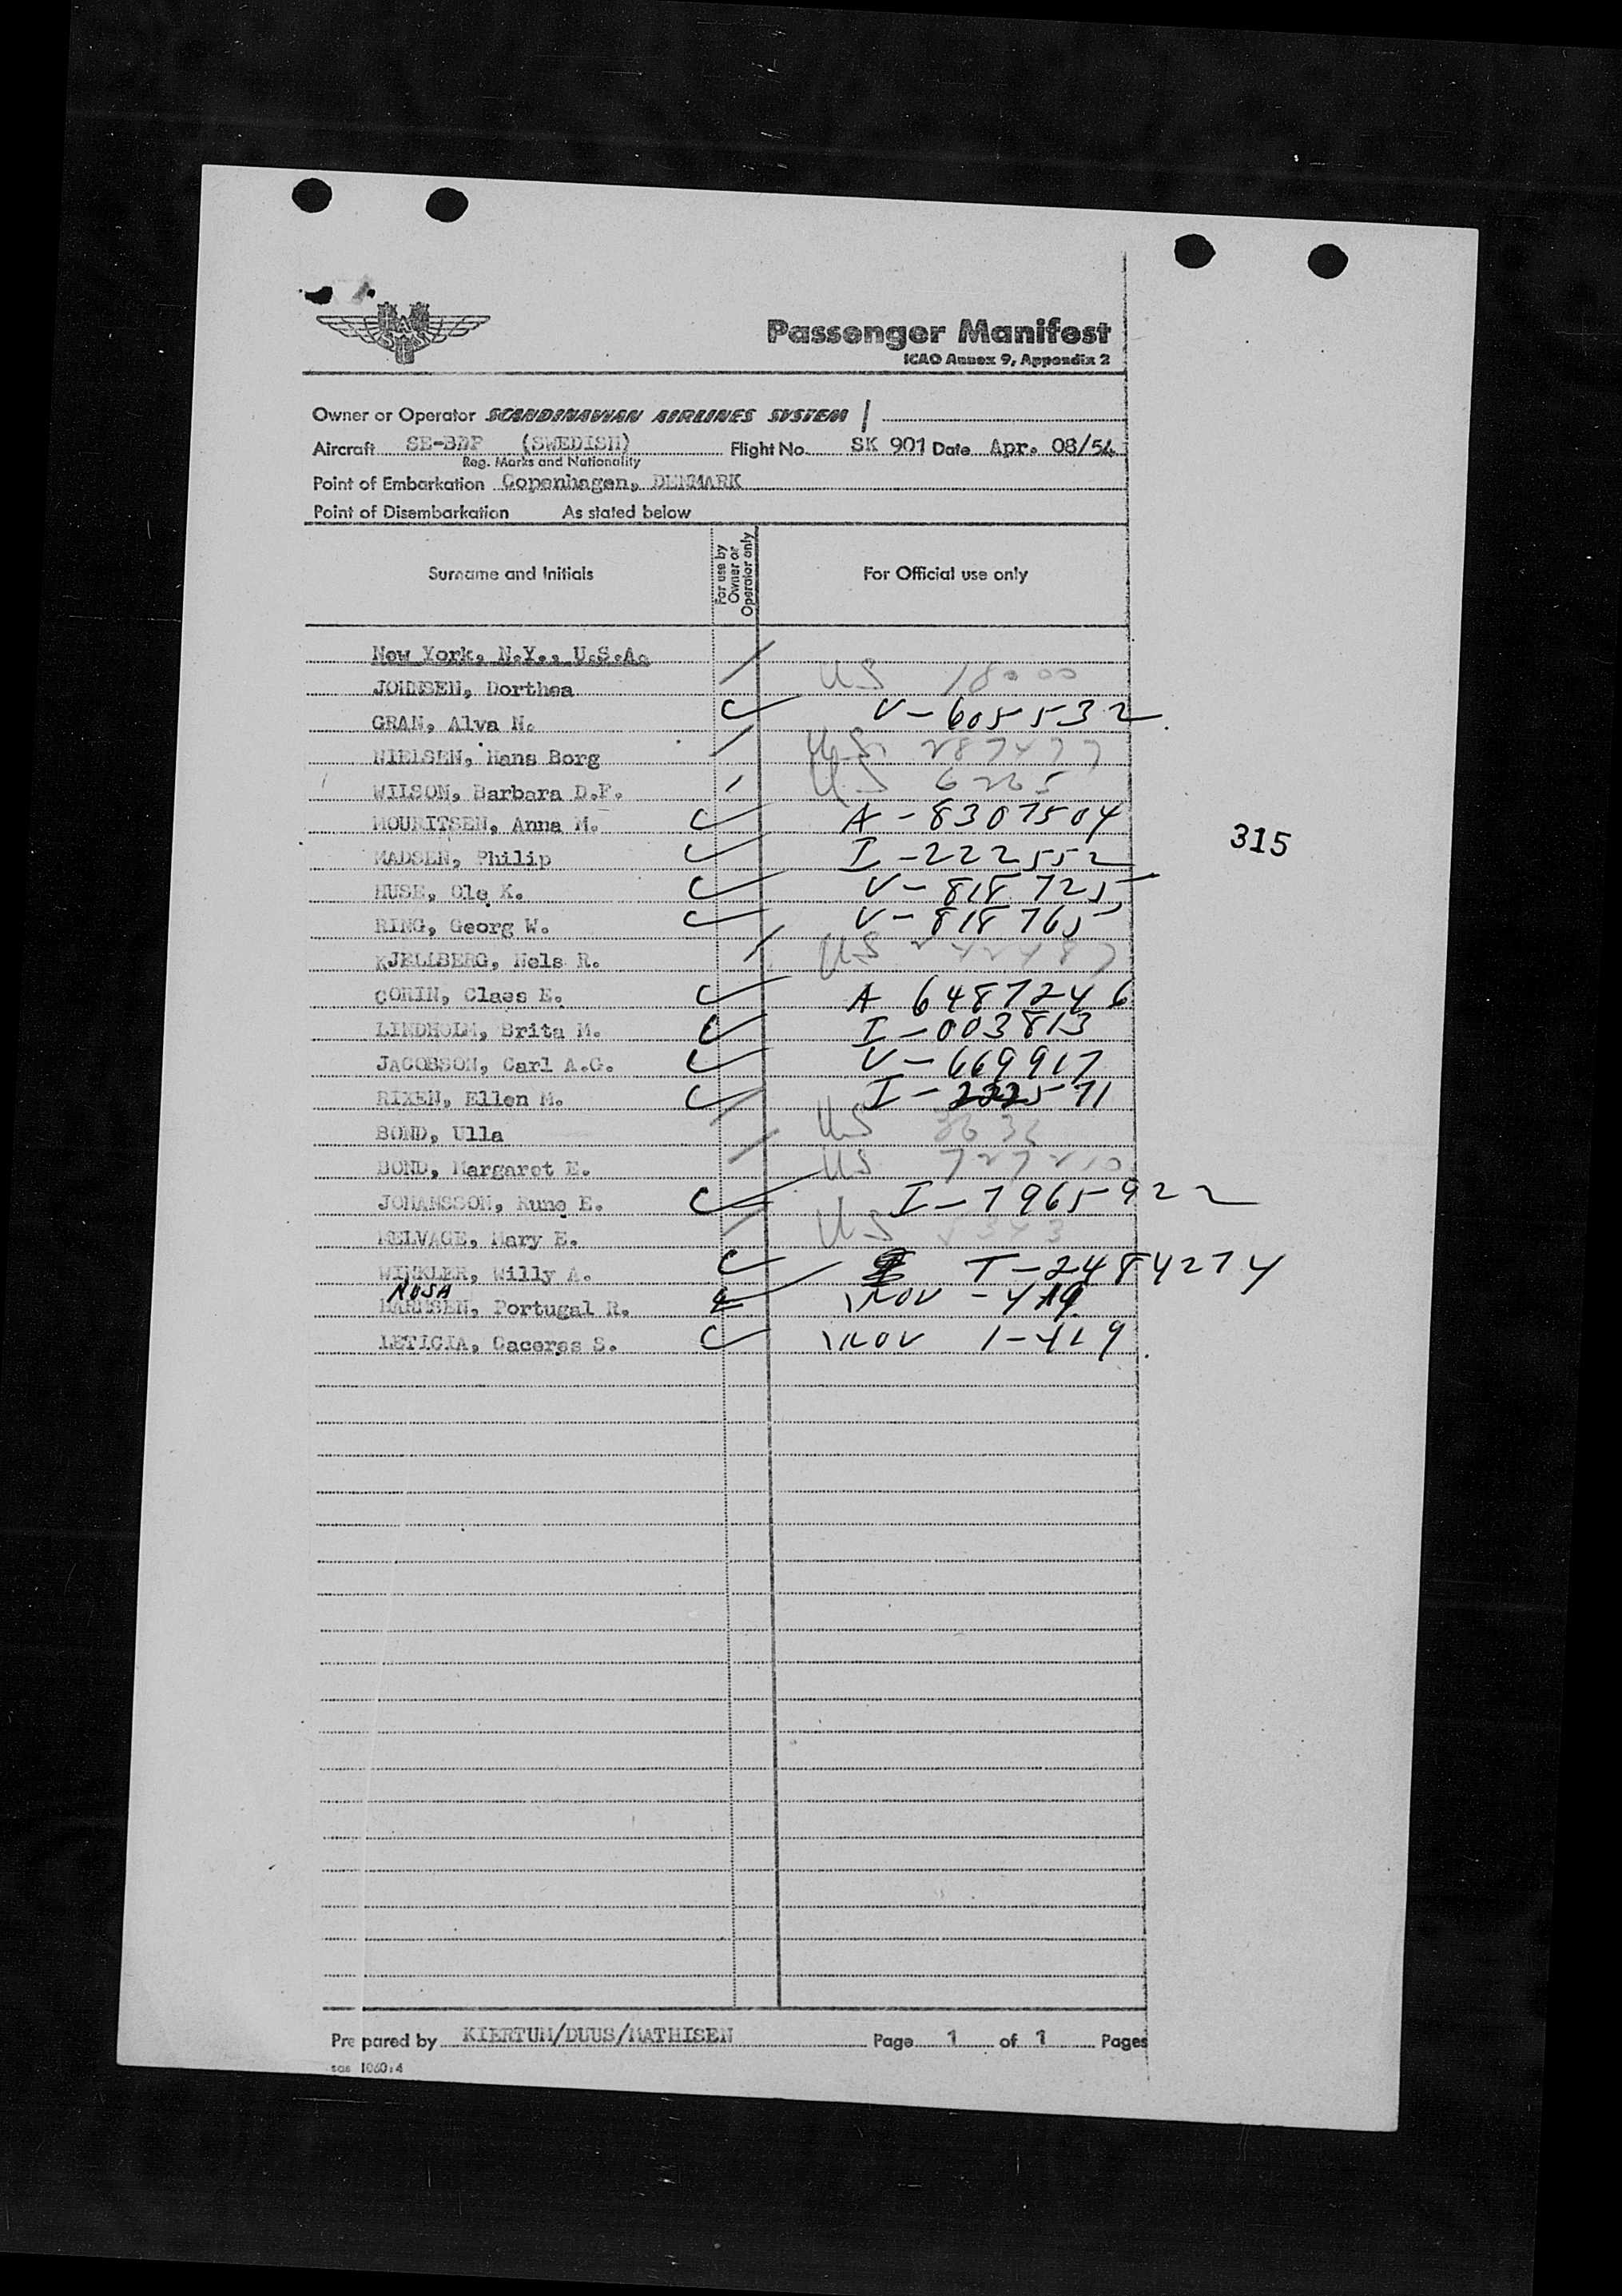 Passenger Manifest
ICAO Annex 9, Appendix 2
Owner or Operator SCANDINAVIAN AIRLINES SYSTEM
Aircraft SE-BDP (SWEDISH) Flight No. SK 901 Date Apr. 08/54
Reg. Marks and Nationality
Point of Embarkation Copenhagen, DENMARK
Point of Disembarkation As stated below
Surname and Initials For use by Owner or Operator only For Official use only
New York, N.Y., U.S.A.
JOHNSEN, Dorthea US
GRAN, Alva N. V-605532
NIELSEN, Hans Borg US
WILSON, Barbara D.F. US 6265
MOURITSEN, Anna M. A-8307504
315
MADSEN, Philip I-222552
HUSE, Ole K. V-818725
RING, Georg W. V-818765
KJELLBERG, Nels R. US
CORIN, Claes E. A 6487246
LINDHOLM, Brita M. I-003813
JACOBSON, Carl A.G. V-669917
RIXEN, Ellen M. I-222571
BOND, Ulla US
BOND, Margaret E. US
JOHANSSON, Rune E. I-7965922
MELVAGE, Mary E. US
WINKLER, Willy A. T-2484274
ROSA
HARMSEN, Portugal R.
LETICIA, Caceres S. 1-419
Prepared by KIERTUM/DUUS/MATHISEN Page 1 of 1 Pages
sas 1060:4